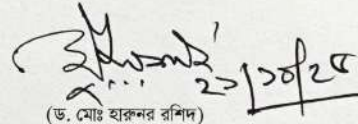 ২১/১০/২৫
(ড. মোঃ হারুনর রশিদ)